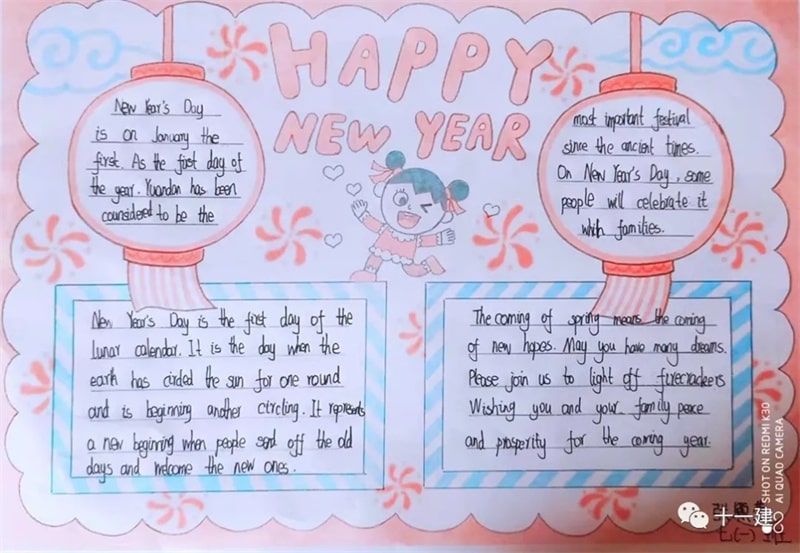 HAPPY
NEW YEAR
New Year's Day
is on January the
first. As the first day of
the year. Yuandan has been
counsidered to be the
most important festival
sinre the ancient times.
On New Year's Day, some
people will celebrate it
with families.
New Year's Day is the first day of the
lunar calendar. It is the day when the
earth has circled the sun for one round
and is beginning another circling. It represents
a new beginning when people send off the old
days and welcome the new ones.
The coming of spring means the coming
of new hopes. May you have many dreams.
Please join us to light off firecrackers
Wishing you and your family peace
and prosperity for the coming year.
SHOT ON REDMI K30
AI QUAD CAMERA
十一建
七(一)班